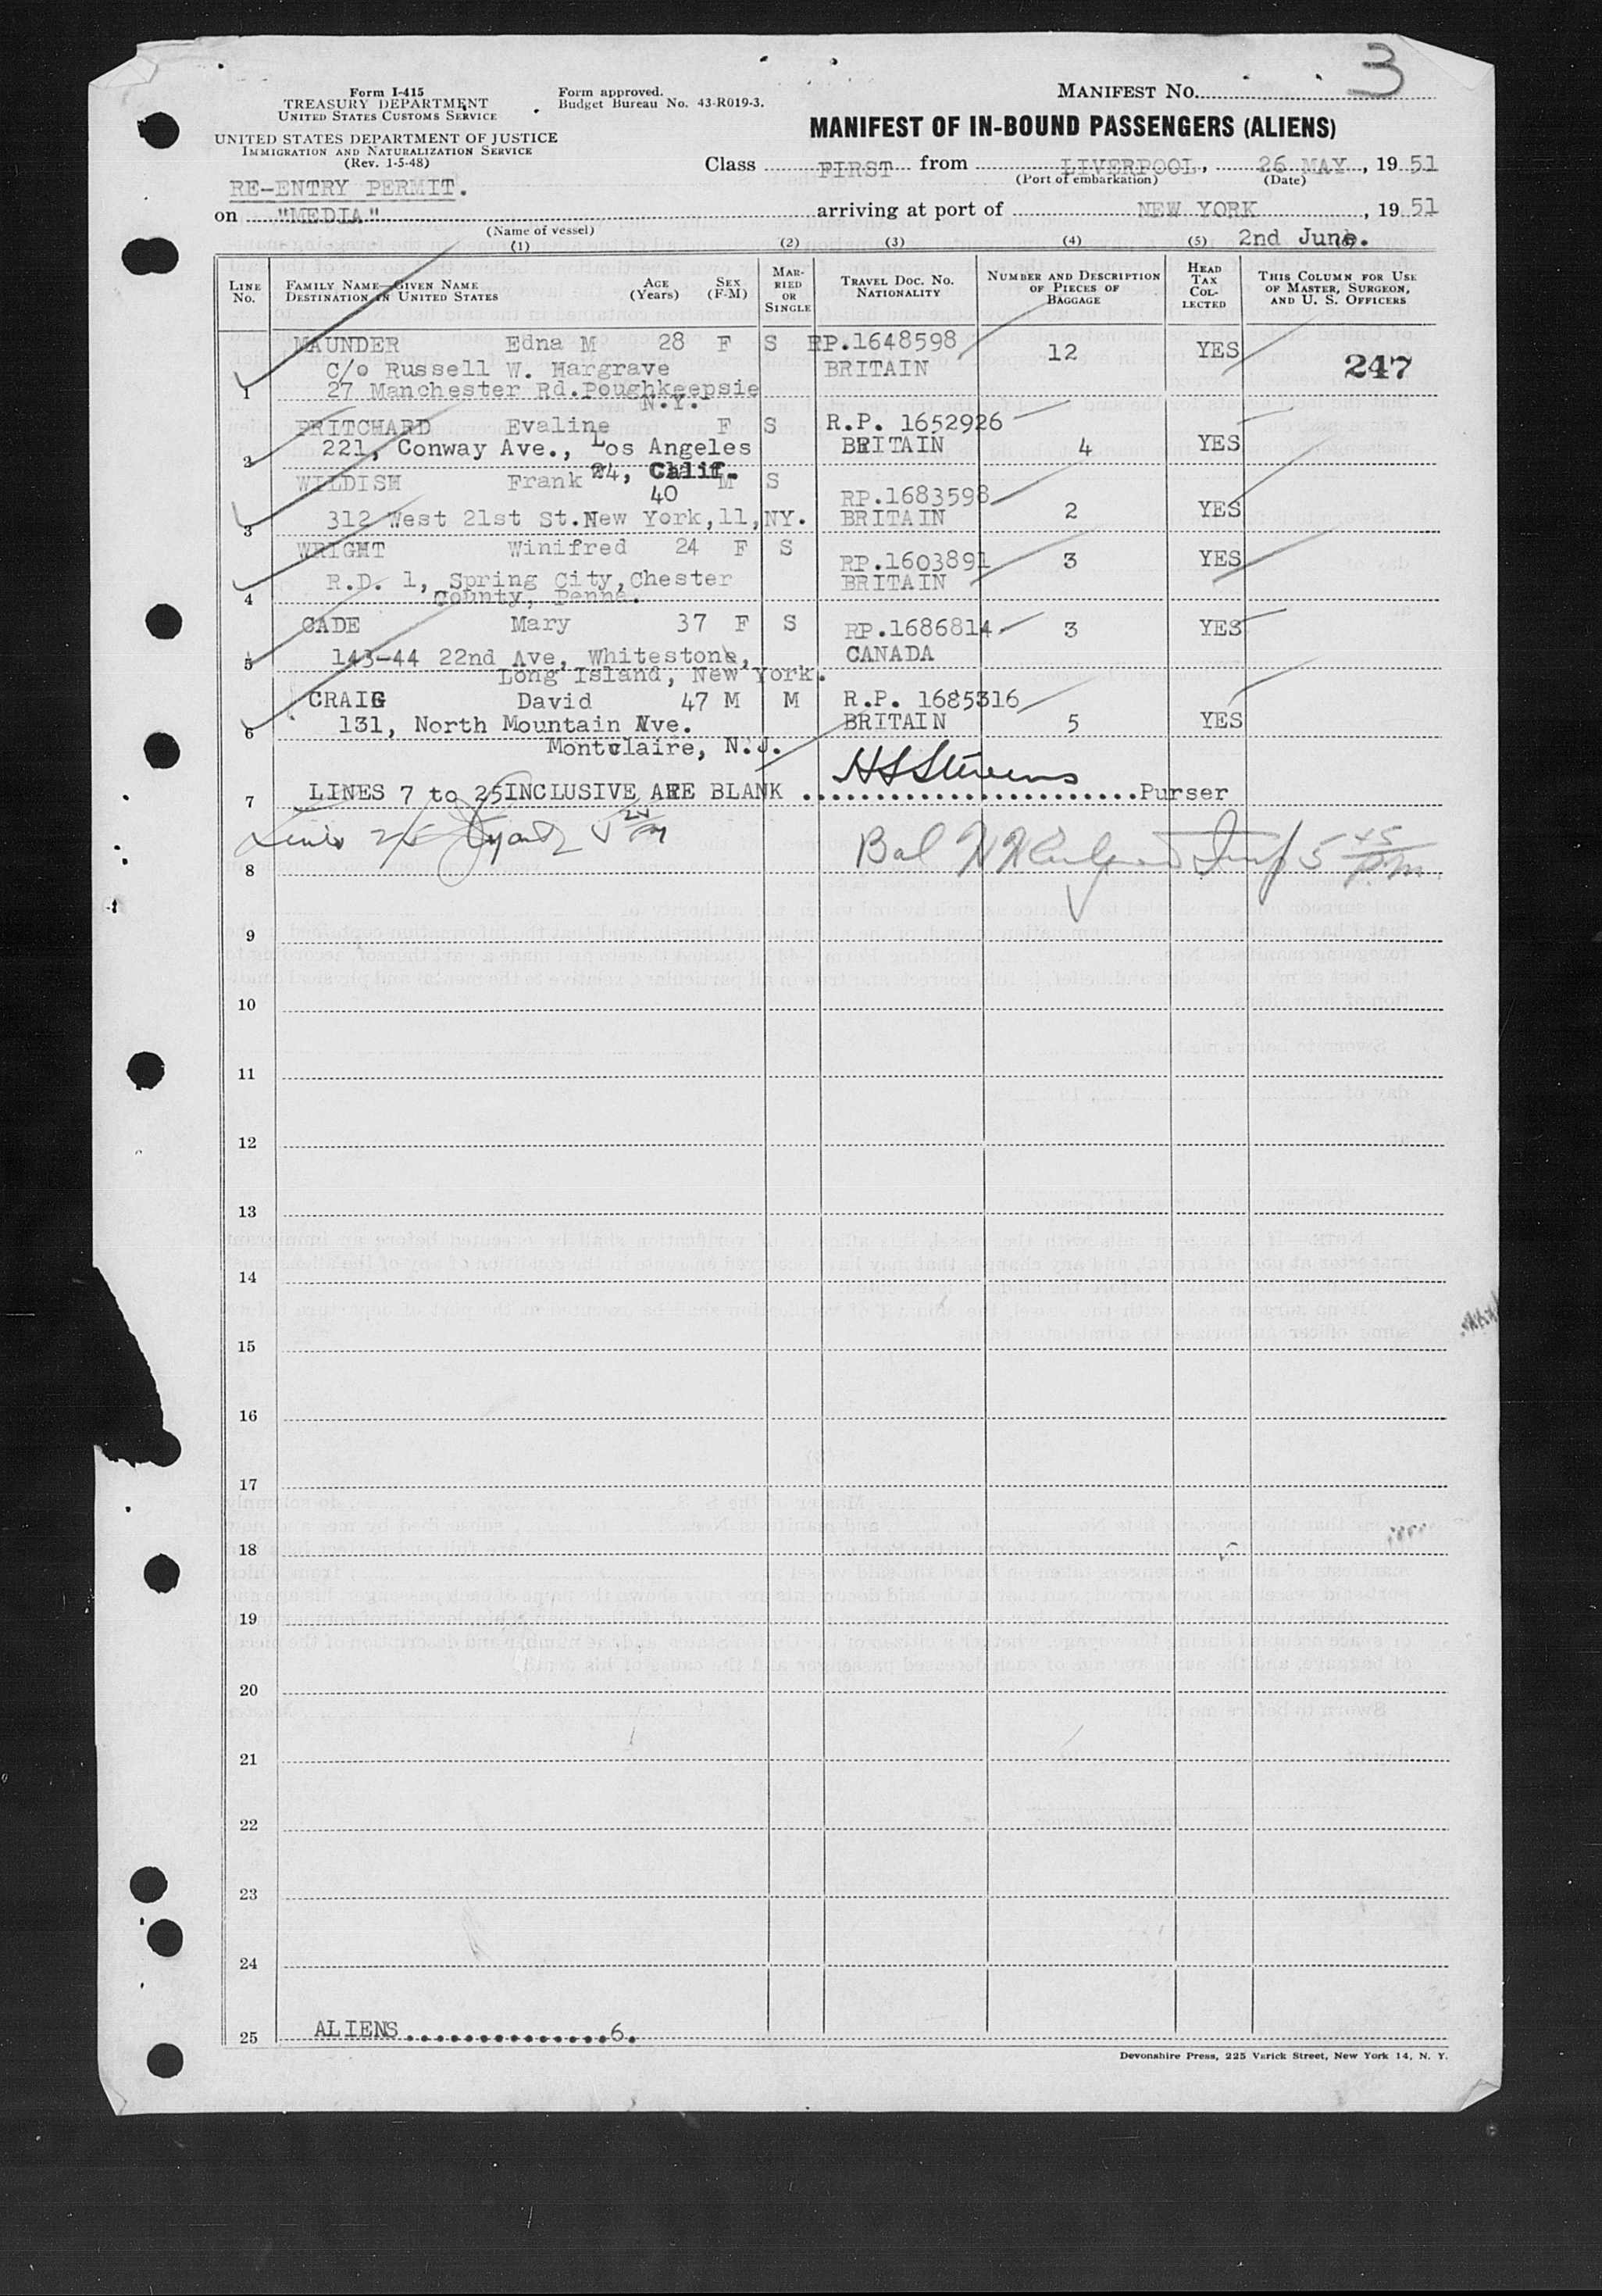 3
Form I-415
TREASURY DEPARTMENT
UNITED STATES CUSTOMS SERVICE
Form approved.
Budget Bureau No. 43-R019-3.
MANIFEST NO.
UNITED STATES DEPARTMENT OF JUSTICE
IMMIGRATION AND NATURALIZATION SERVICE
(Rev. 1-5-48)
MANIFEST OF IN-BOUND PASSENGERS (ALIENS)
Class FIRST from LIVERPOOL, 26 MAY, 19 51
(Port of embarkation) (Date)
RE-ENTRY PERMIT.
on "MEDIA" arriving at port of NEW YORK, 19 51
(Name of vessel)
2nd June.
(1) (2) (3) (4) (5)
LINE NO. FAMILY NAME—GIVEN NAME DESTINATION IN UNITED STATES AGE (Years) SEX (F-M) MARRIED OR SINGLE TRAVEL DOC. NO. NATIONALITY NUMBER AND DESCRIPTION OF PIECES OF BAGGAGE HEAD TAX COLLECTED THIS COLUMN FOR USE OF MASTER, SURGEON, AND U. S. OFFICERS
MAUNDER Edna M 28 F S RP.1648598 12 YES 247
C/o Russell W. Hargrave BRITAIN
1 27 Manchester Rd.Poughkeepsie
N.Y.
PRITCHARD Evaline F S R.P. 1652926
2 221, Conway Ave., Los Angeles BRITAIN 4 YES
24, Calif.
WILDISH Frank 40 M S RP.1683598
3 312 West 21st St.New York,11,NY. BRITAIN 2 YES
WRIGHT Winifred 24 F S RP.1603891 3 YES
4 R.D. 1, Spring City,Chester BRITAIN
County, Penna.
CADE Mary 37 F S RP.1686814 3 YES
5 143-44 22nd Ave, Whitestone, CANADA
Long Island, New York.
CRAIG David 47 M M R.P. 1685316
6 131, North Mountain Ave. BRITAIN 5 YES
Montclaire, N.J.
7 LINES 7 to 25 INCLUSIVE ARE BLANK HSStevens Purser
8 Bal 5 45 p.m.
9
10
11
12
13
14
15
16
17
18
19
20
21
22
23
24
25 ALIENS..............6.
Devonshire Press, 225 Varick Street, New York 14, N. Y.